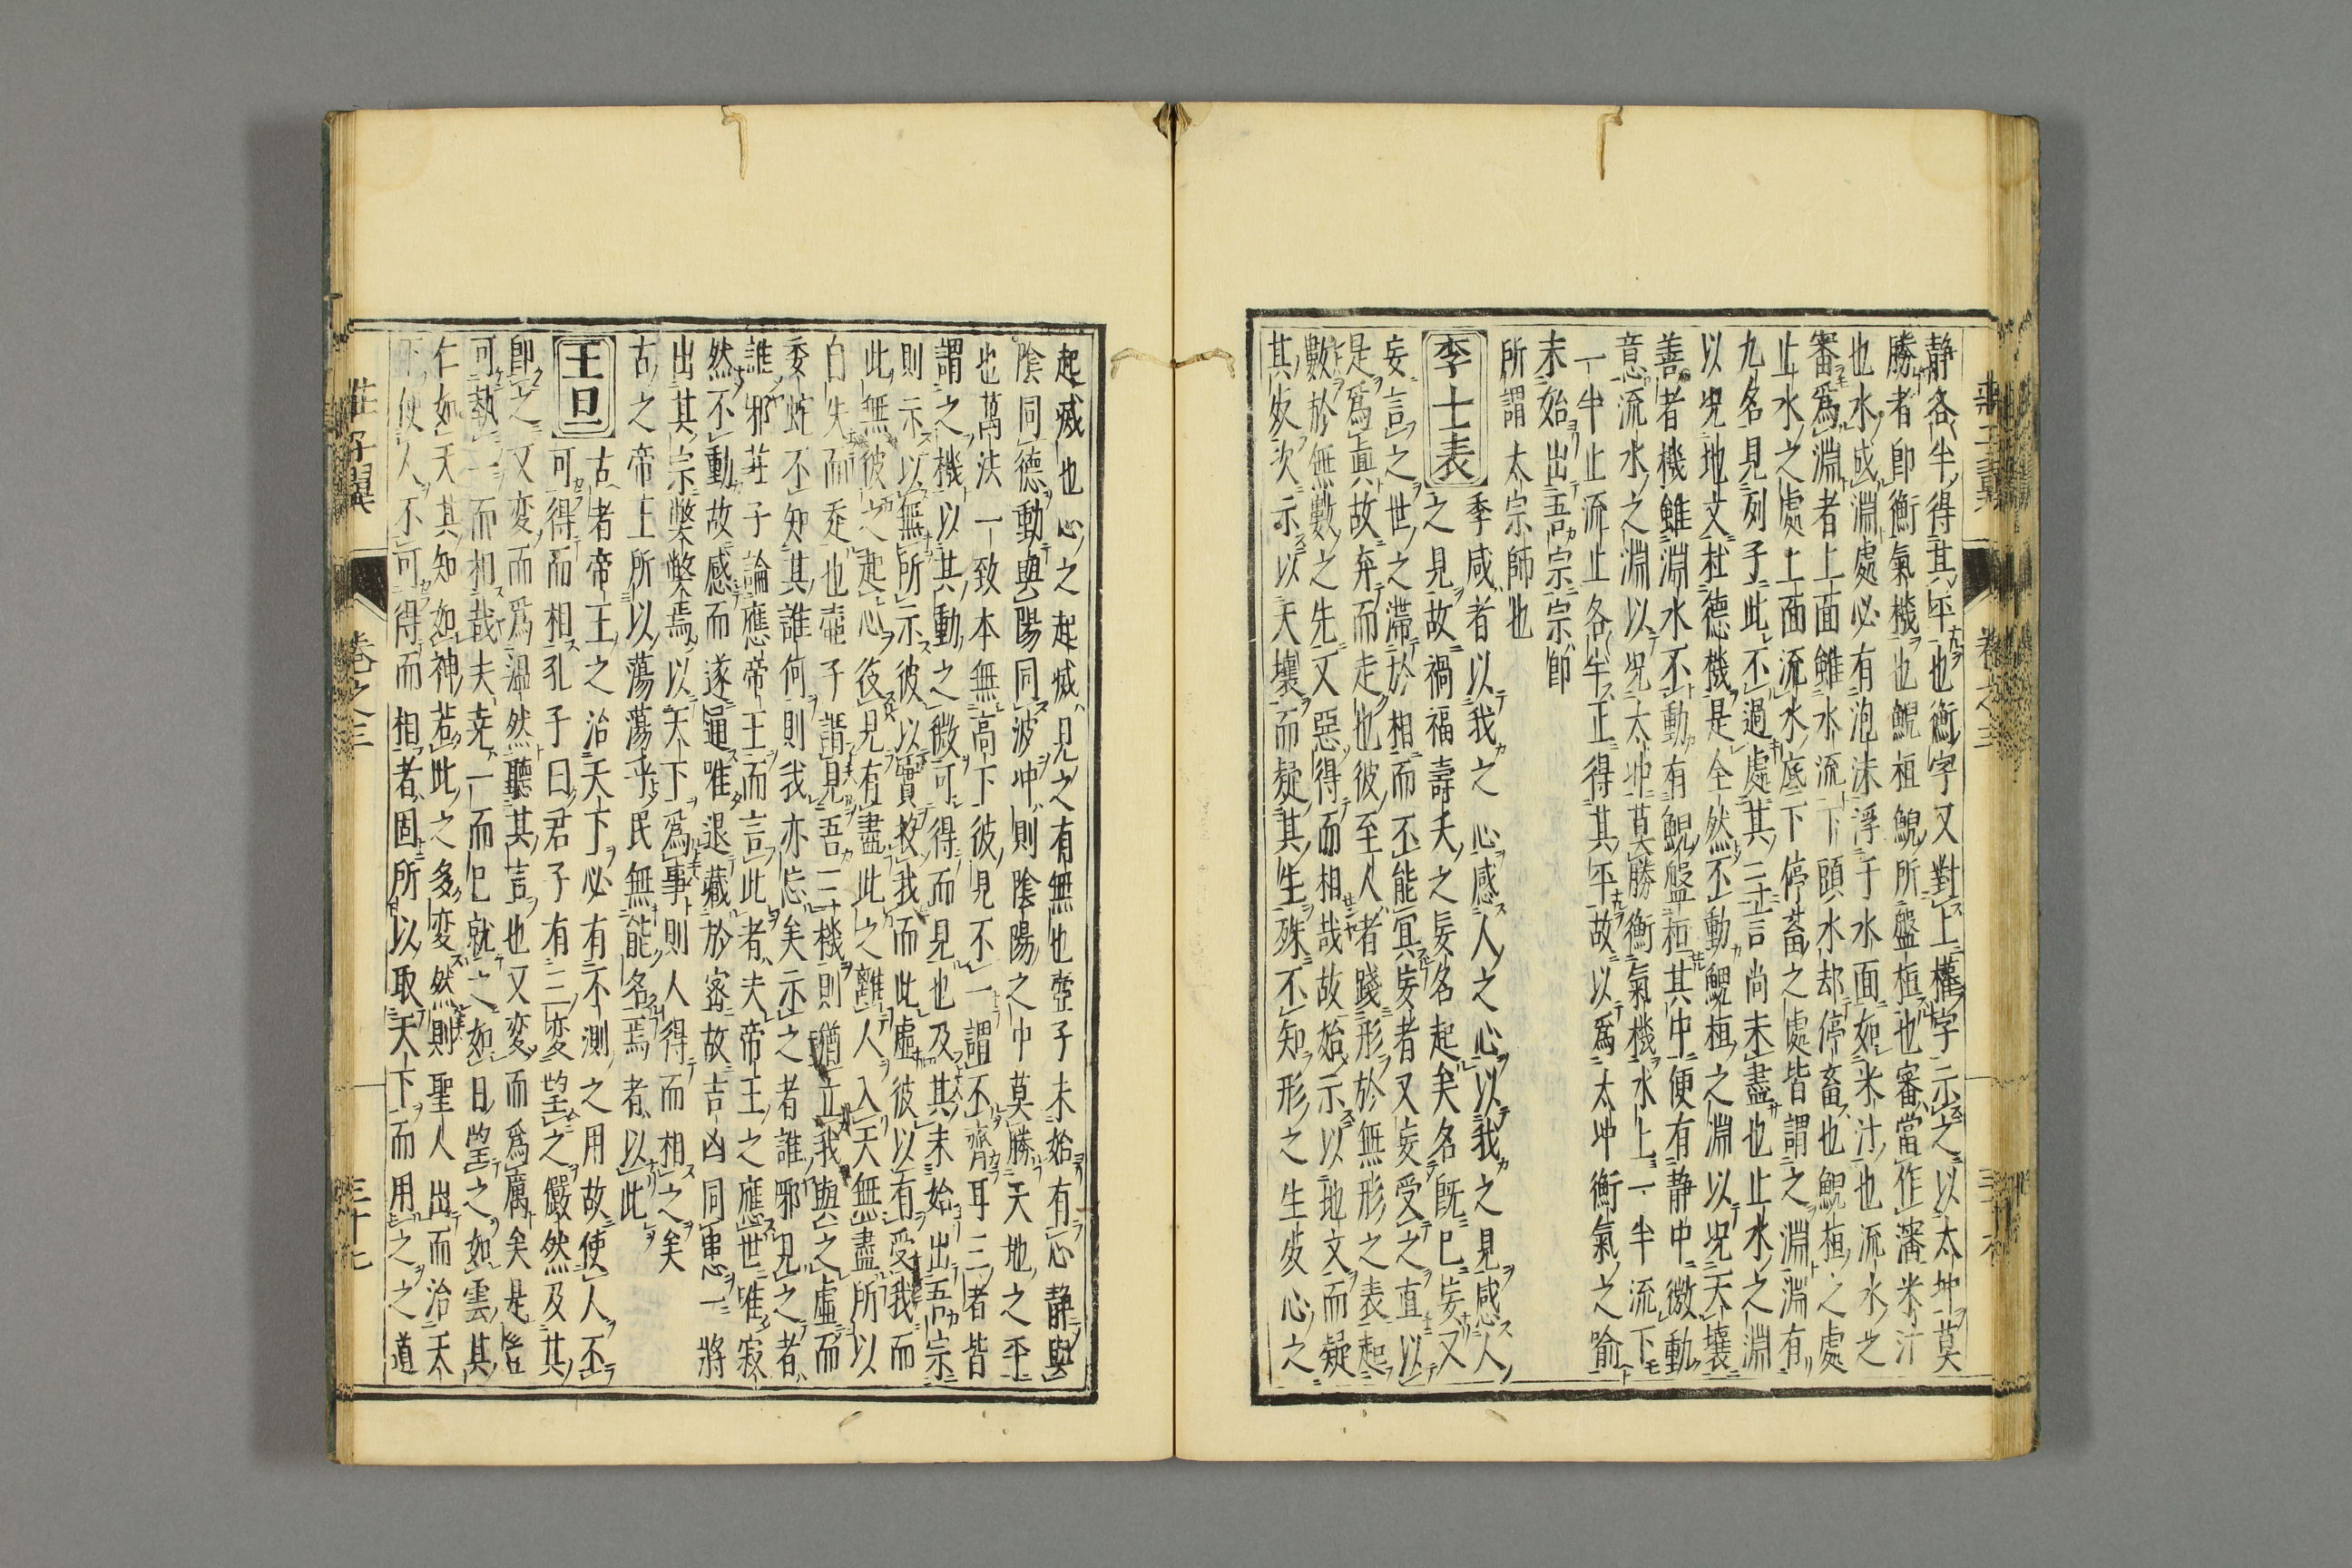 静各半得其平也衡字又對上權字示之以太冲莫
勝者即衡氣機也鯢桓鯢所盤桓也審當作瀋米汁
也水成淵處必有泡沫浮于水面如米汁也流水之
審爲淵者上面雖水流下頭水却停畜也鯢桓之處
止水之處上面流水底下停蓄之處皆謂之淵淵有
九名見列子此不過處其三言尚未盡也止水之淵
以况地文杜德機是全然不動鯢桓之淵以况天壤
善者機雖淵水不動有鯢盤桓其中便有静中微動
意流水之淵以况太冲莫勝衡氣機水上一半流下
一半止流止各半正得其平故以爲太冲衡氣之喻
未始出吾宗宗即
所謂太宗師也
李士表
季咸者以我之心感人之心以我之見感人
之見故禍福壽夭之妄名起矣名既已妄又
妄言之世之滞於相而不能冥妄者又妄受之直以
是爲真故弃而走也彼至人者踐形於無形之表起
數於無數之先又惡得而相哉故始示以地文而疑
其死次示以天壤而疑其生殊不知形之生死心之
起滅也心之起滅見之有無也壺子未始有心静與
陰同德動與陽同波冲則陰陽之中莫勝天地之平
也萬法一致本無高下彼見不一謂不齊耳三者皆
謂之機以其動之微可得而見也及其未始出吾宗
則示以無所示彼以實投我而此虛彼以有受我而
此無彼之起心役見有盡此之離人入天無盡所以
自失而走也壺子謂見吾三機則猶立我與之虛而
委蛇不知其誰何則我亦忘矣示之者誰邪見之者
誰邪莊子論應帝王而言此者夫帝王之應世唯寂
然不動故感而遂通唯退藏於密故吉凶同患一將
出其宗弊弊焉以天下爲事則人得而相之矣
古之帝王所以蕩蕩乎民無能名焉者以此
王旦
古者帝王之治天下必有不測之用故使人不
可得而相孔子曰君子有三変望之儼然及其
即之又変而爲温然聽其言也又変而爲厲矣是豈
可執一而相哉夫尭一而已就之如日望之如雲其
仁如天其知如神若此之多変然則聖人出而治天
下使人不可得而相者固所以取天下而用之之道
莊子翼
巻之三
三十七